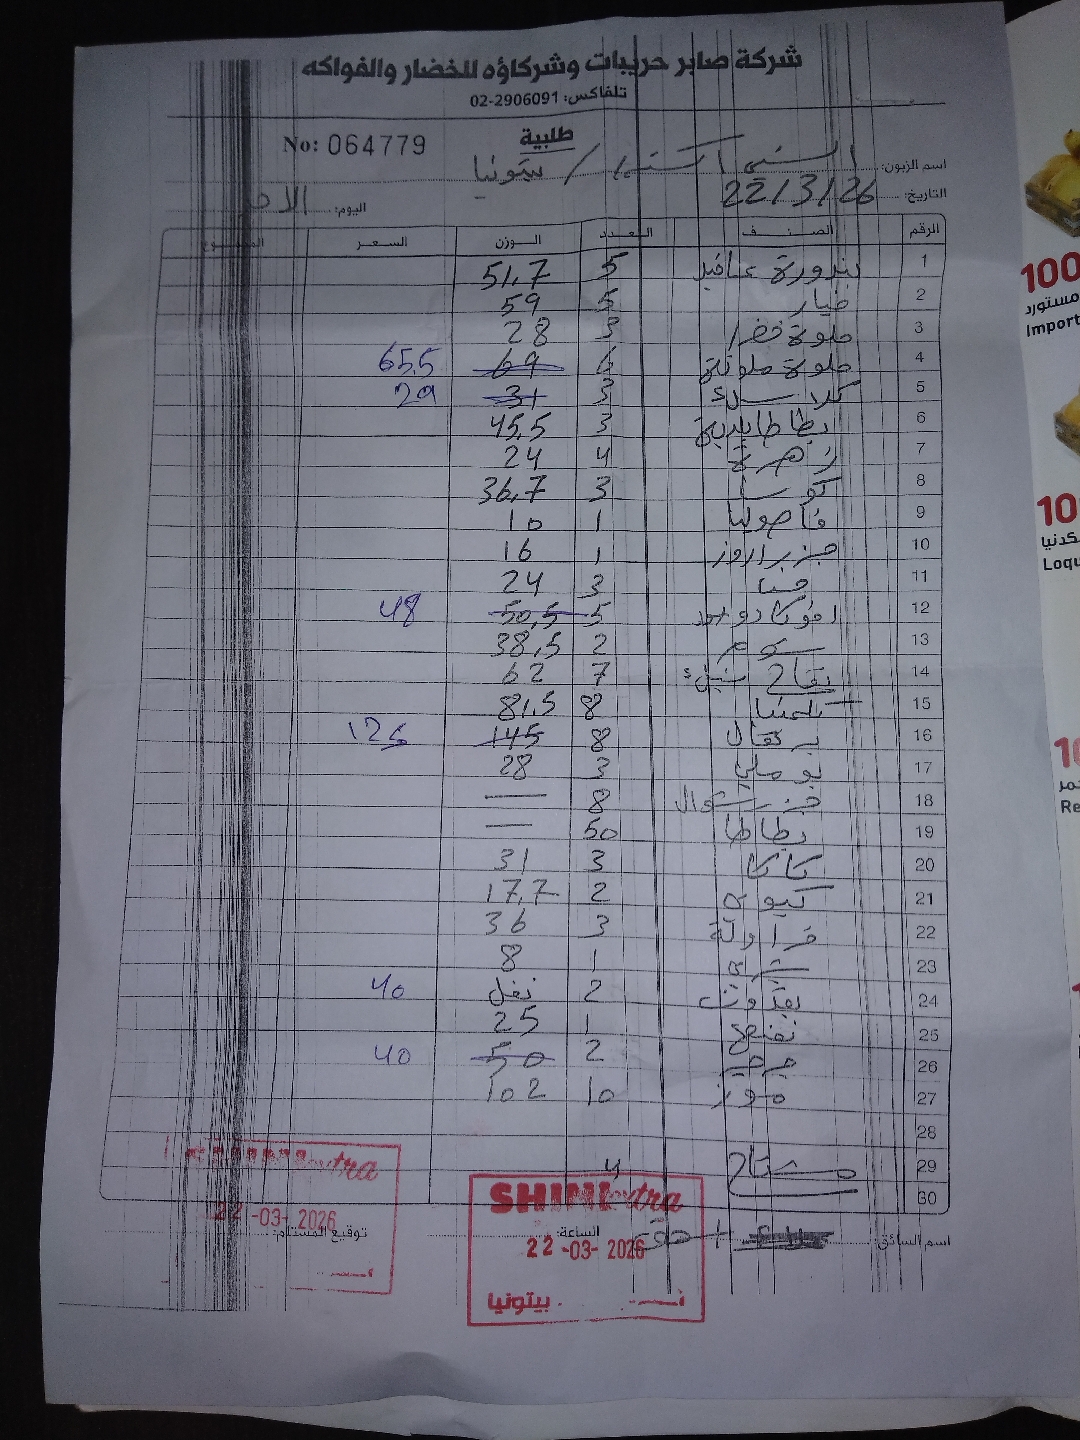 شركة صابر حريبات وشركاؤه للخضار والفواكه
تلفاكس: 02-2906091
طلبية
No: 064779
اسم الزبون: الشني اكسترا / بيتونيا
التاريخ: 22/3/26 اليوم: الاحد
الرقم الصنف العدد الوزن السعر المجموع
1 بندورة عناقيد 5 51,7
2 خيار 5 59
3 حلوة خضرا 3 28
4 حلوة ملونة 6 69 65,5
5 3 31 29
6 بطاطا بلدية 3 45,5
7 زهرة 4 24
8 كوسا 3 36,7
9 فاصوليا 1 10
10 جزر اروز 1 16
11 خسا 3 24
12 افوكادو 5 50,5 48
13 2 38,5
14 تفاح 7 62
15 كلمنتينا 8 81,5
16 برتقال 8 145 126
17 بوملي 3 28
18 جزر شوال 8 —
19 بطاطا 50 —
20 كاكا 3 31
21 كيوي 2 17,7
22 فراولة 3 36
23 1 8
24 بقدونس 2 نفل 40
25 نعنع 1 25
26 جرجير 2 50 40
27 موز 10 102
28
29 4
30
اسم السائق: الساعة: توقيع المستلم:
SHINI extra
22-03-2026
بيتونيا
extra
22-03-2026
100
مستورد
Import
10
كدنيا
Loqu
10
حمر
Re